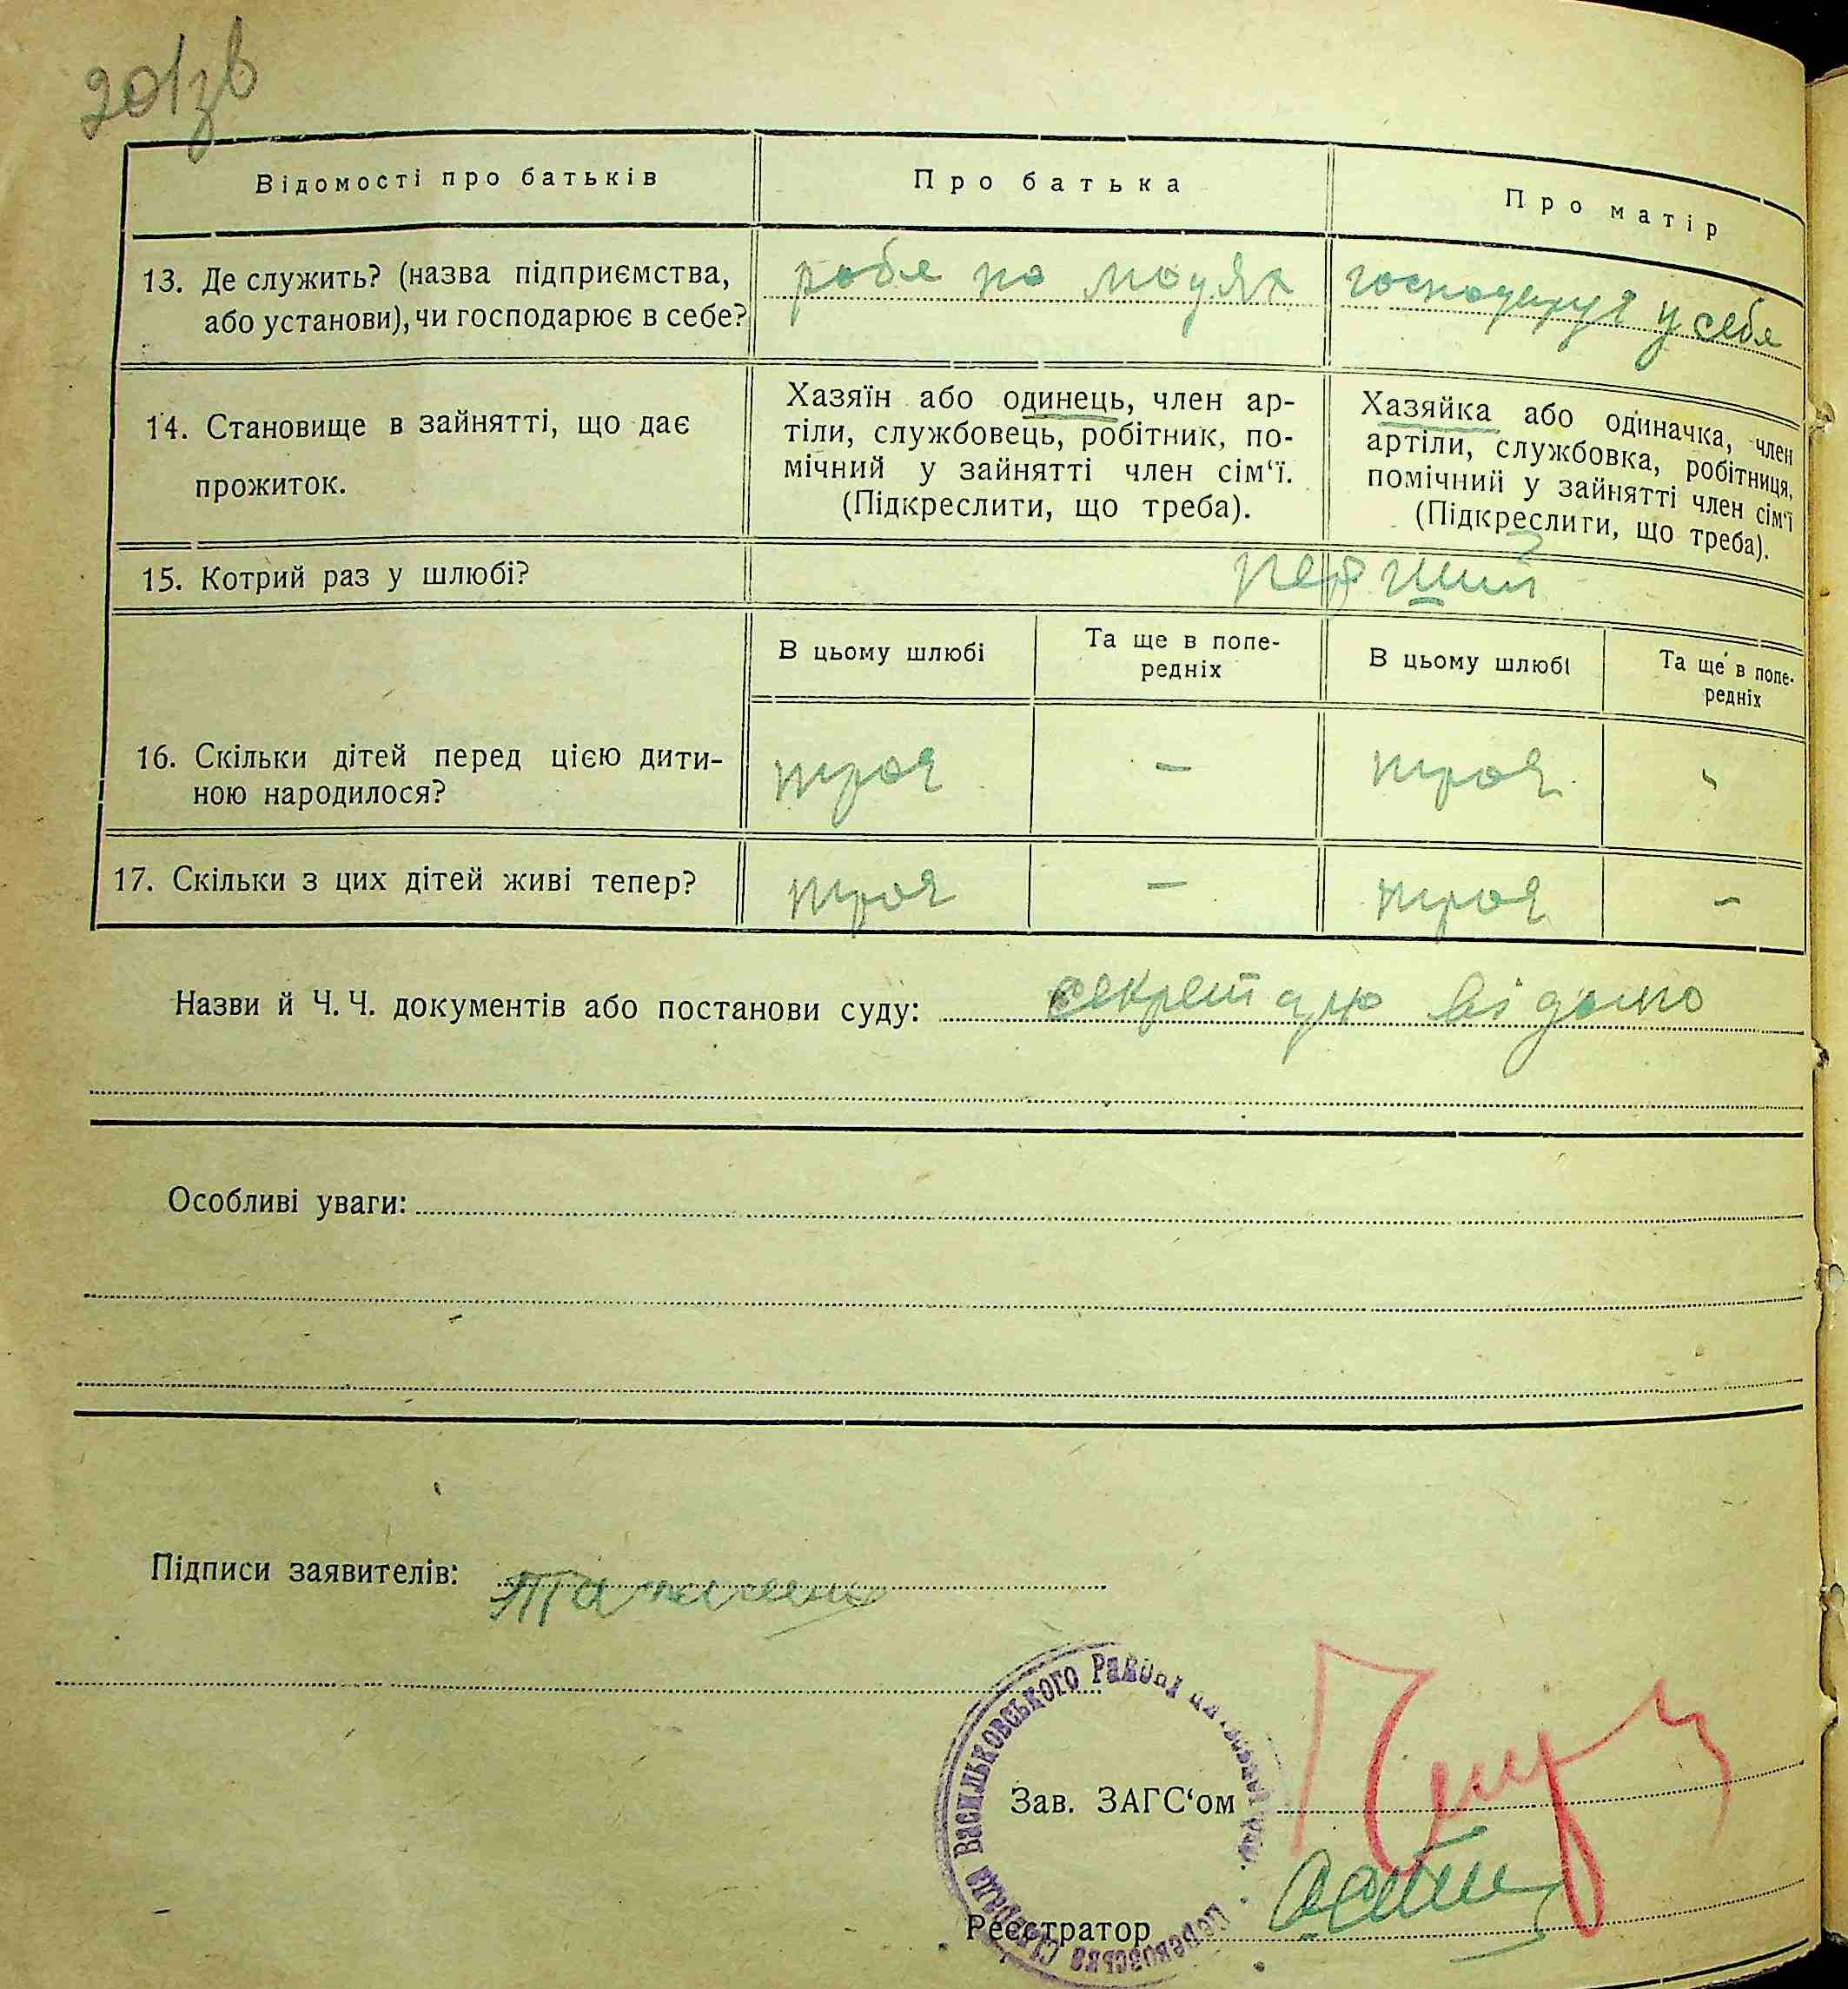 201зв
Відомості про батьків
Про батька
Про матір
13. Де служить? (назва підприємства,
або установи), чи господарює в себе?
робе по людях
господарує у себе
14. Становище в зайнятті, що дає
прожиток.
Хазяїн або одинець, член ар-
тіли, службовець, робітник, по-
мічний у зайнятті член сім‘ї.
(Підкреслити, що треба).
Хазяйка або одиначка, член
артіли, службовка, робітниця,
помічний у зайнятті член сім‘ї
(Підкреслити, що треба).
15. Котрий раз у шлюбі?
перший
В цьому шлюбі
Та ще в попе-
редніх
В цьому шлюбі
Та ще в попе-
редніх
16. Скільки дітей перед цією дити-
ною народилося?
троє
–
троє
-
17. Скільки з цих дітей живі тепер?
троє
–
троє
–
Назви й Ч. Ч. документів або постанови суду: секретарю відомо
Особливі уваги:
Підписи заявителів:
Васильковського Района
Сільрада
Зав. ЗАГС‘ом
Реєстратор